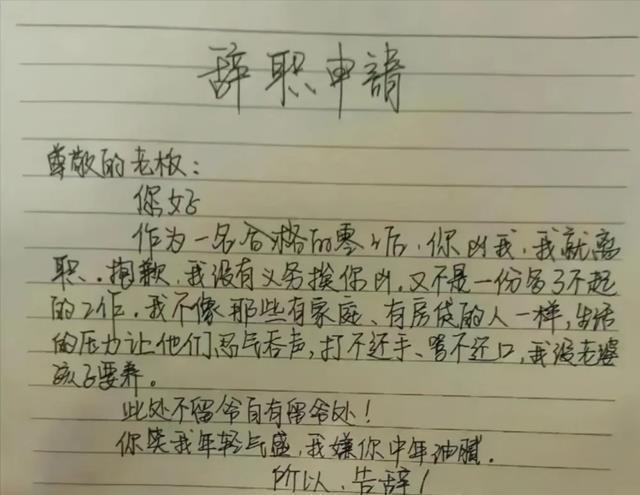 辞职申請
尊敬的老板：
你好
作为一名合格的零零后，你凶我，我就离
职．抱歉，我没有义务挨你凶．又不是一份多了不起
的工作．我不像那些有家庭、有房贷的人一样，生活
的压力让他们忍气吞声，打不还手、骂不还口，我没老婆
孩子要养。
此处不留爷自有留爷处！
你笑我年轻气盛，我嫌你中年油腻．
所以，告辞！